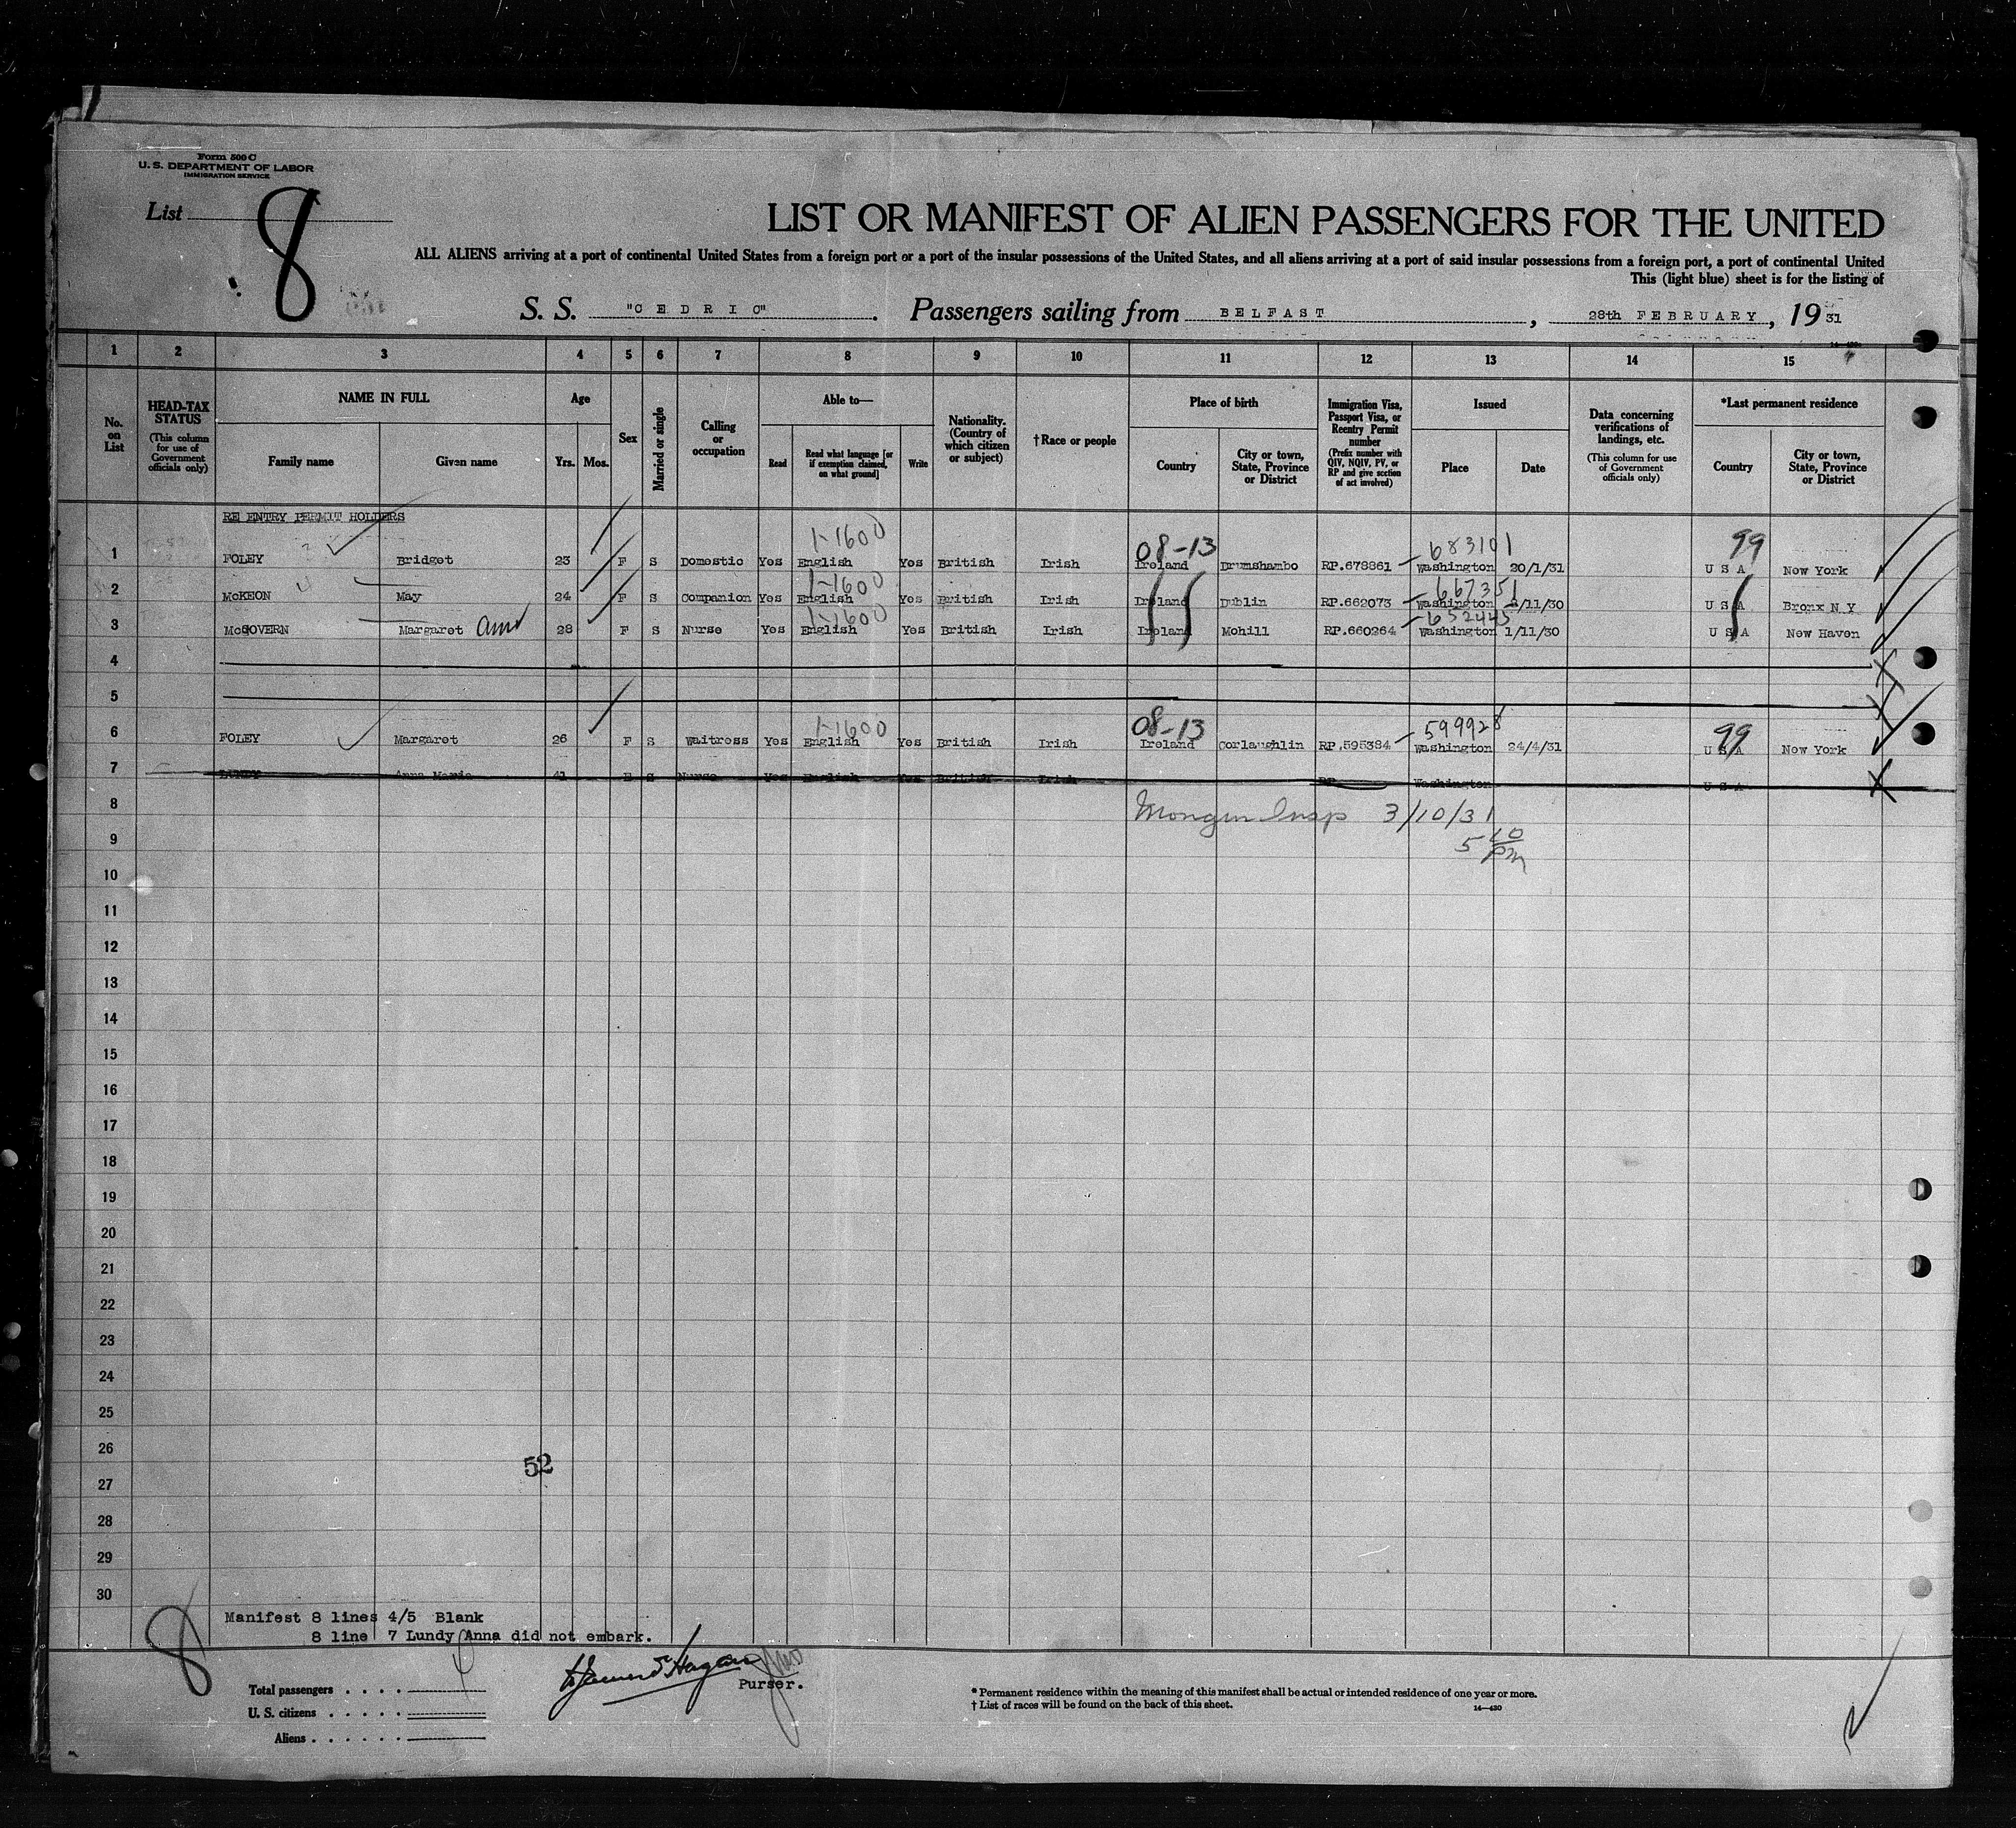 Form 500 C
U. S. DEPARTMENT OF LABOR
IMMIGRATION SERVICE
List 8
LIST OR MANIFEST OF ALIEN PASSENGERS FOR THE UNITED
ALL ALIENS arriving at a port of continental United States from a foreign port or a port of the insular possessions of the United States, and all aliens arriving at a port of said insular possessions from a foreign port, a port of continental United
This (light blue) sheet is for the listing of
S. S. "CEDRIC". Passengers sailing from BELFAST, 28th FEBRUARY, 1931
1 2 3 4 5 6 7 8 9 10 11 12 13 14 15
No. on List
HEAD-TAX STATUS (This column for use of Government officials only)
NAME IN FULL
Family name
Given name
Age
Yrs. Mos.
Sex
Married or single
Calling or occupation
Able to—
Read
Read what language [or if exemption claimed, on what ground]
Write
Nationality. (Country of which citizen or subject)
† Race or people
Place of birth
Country
City or town, State, Province or District
Immigration Visa, Passport Visa, or Reentry Permit number (Prefix number with QIV, NQIV, PV, or RP and give section of act involved)
Issued
Place
Date
Data concerning verifications of landings, etc. (This column for use of Government officials only)
*Last permanent residence
Country
City or town, State, Province or District
RE ENTRY PERMIT HOLDERS
1-1600 08-13 683101 99
1 FOLEY Bridget 23 F S Domestic Yes English Yes British Irish Ireland Drumshambo RP.678861 Washington 20/1/31 U S A New York
1-1600 667351
2 McKEON May 24 F S Companion Yes English Yes British Irish Ireland Dublin RP.662073 Washington /11/30 U S A Bronx N Y
1-1600 652445
3 McGOVERN Margaret Ann 28 F S Nurse Yes English Yes British Irish Ireland Mohill RP.660264 Washington 1/11/30 U S A New Haven
4
5
1-1600 08-13 599928 99
6 FOLEY Margaret 26 F S Waitress Yes English Yes British Irish Ireland Corlaughlin RP.595384 Washington 24/4/31 U S A New York
7 LUNDY Anna Marie 41 F S Nurse Yes English Yes British Irish RP Washington U S A
8 Insp 3/10/31
9 5 10 PM
10
11
12
13
14
15
16
17
18
19
20
21
22
23
24
25
26
52
27
28
29
30
8
Manifest 8 lines 4/5 Blank
8 line 7 Lundy Anna did not embark.
Purser.
Total passengers . . . .
U. S. citizens . . . . .
Aliens . . . . . .
* Permanent residence within the meaning of this manifest shall be actual or intended residence of one year or more.
† List of races will be found on the back of this sheet.
14—430